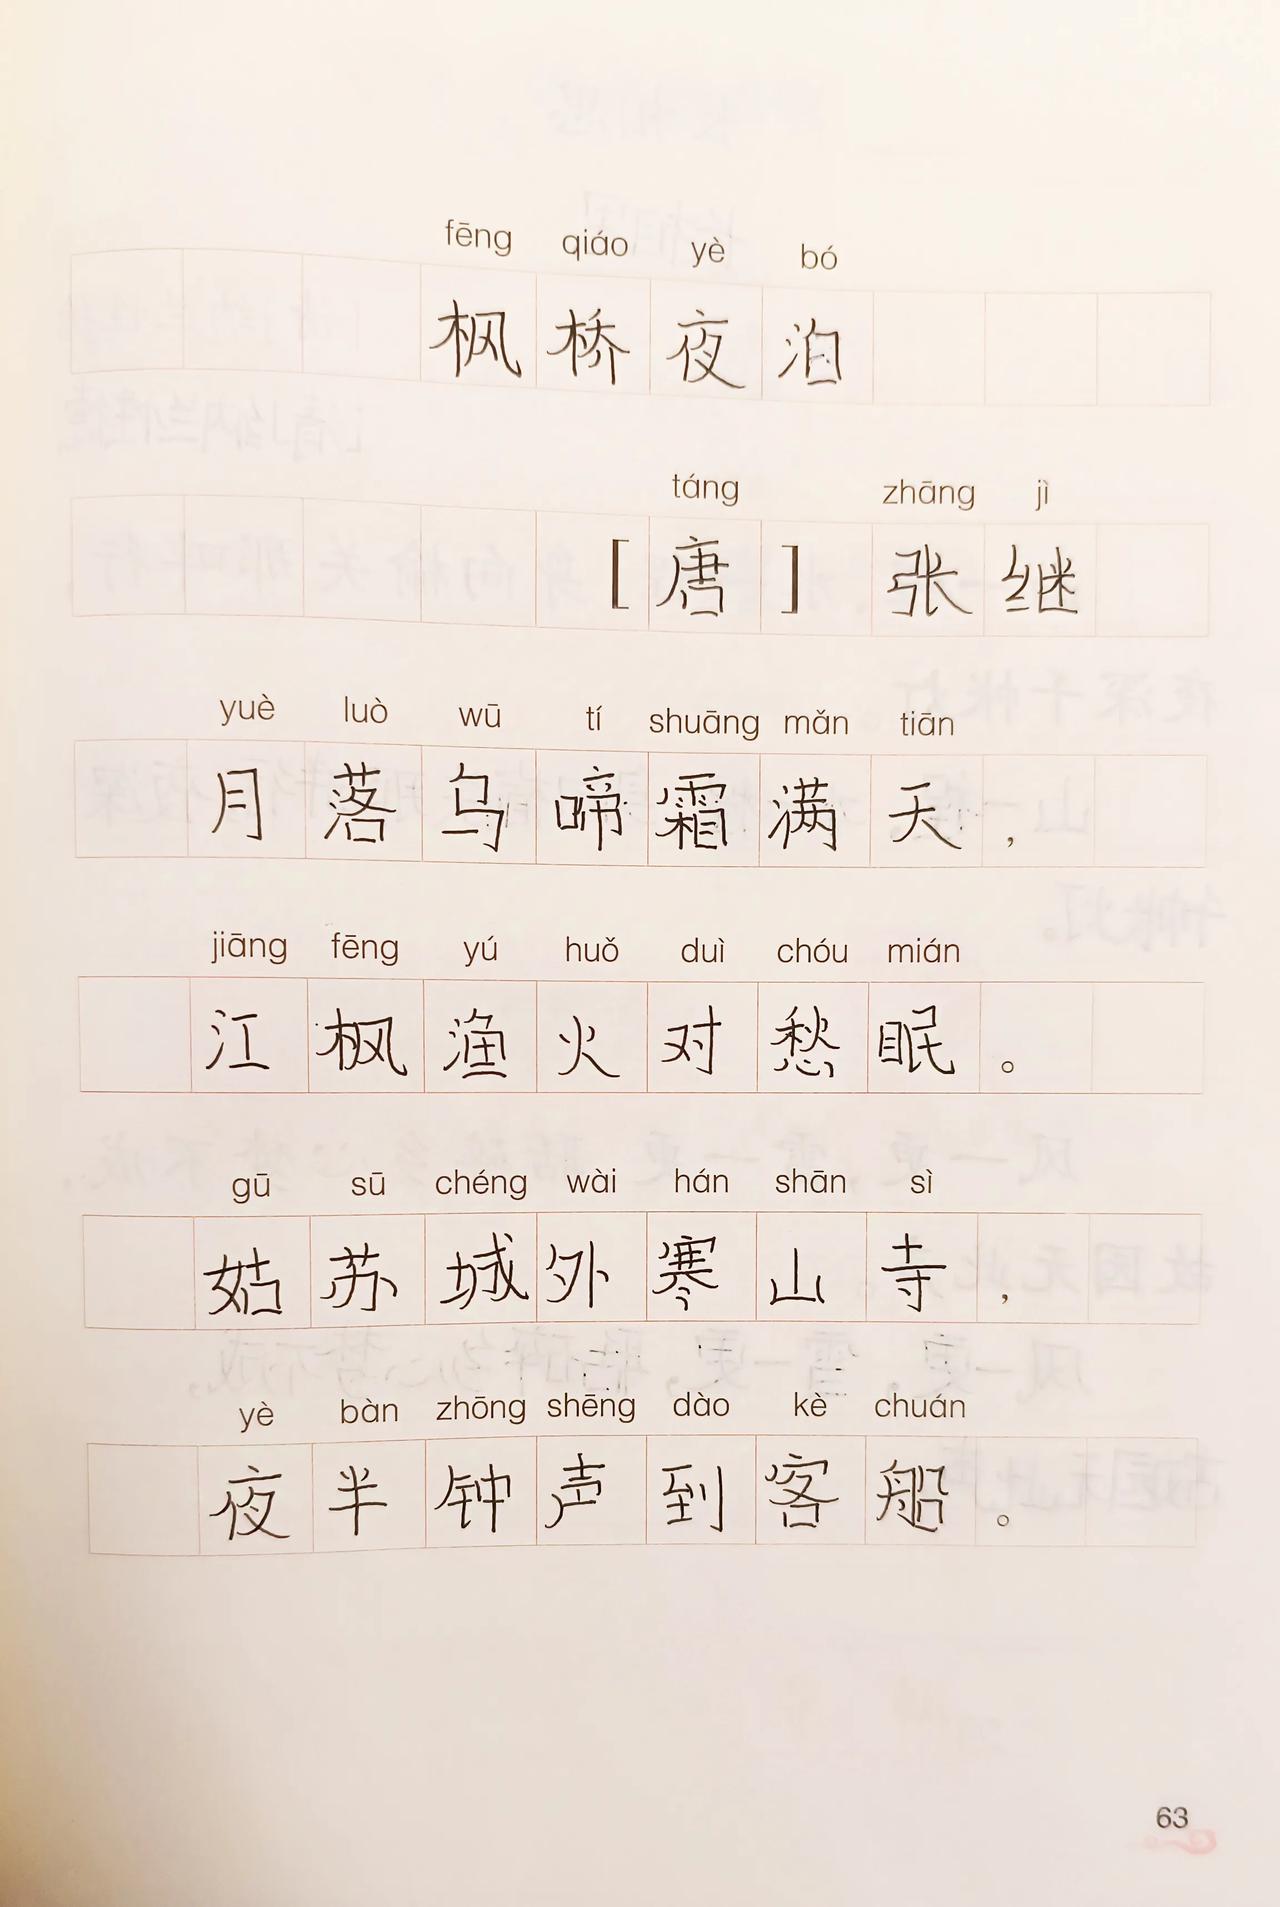 fēng qiáo yè bó
枫桥夜泊
táng zhāng jì
[唐]张继
yuè luò wū tí shuāng mǎn tiān
月落乌啼霜满天，
jiāng fēng yú huǒ duì chóu mián
江枫渔火对愁眠。
gū sū chéng wài hán shān sì
姑苏城外寒山寺，
yè bàn zhōng shēng dào kè chuán
夜半钟声到客船。
63